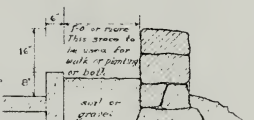 6"
1'-0 or more
This space to
be used for
walk or planting
or both.
16"
8"
soil or
gravel